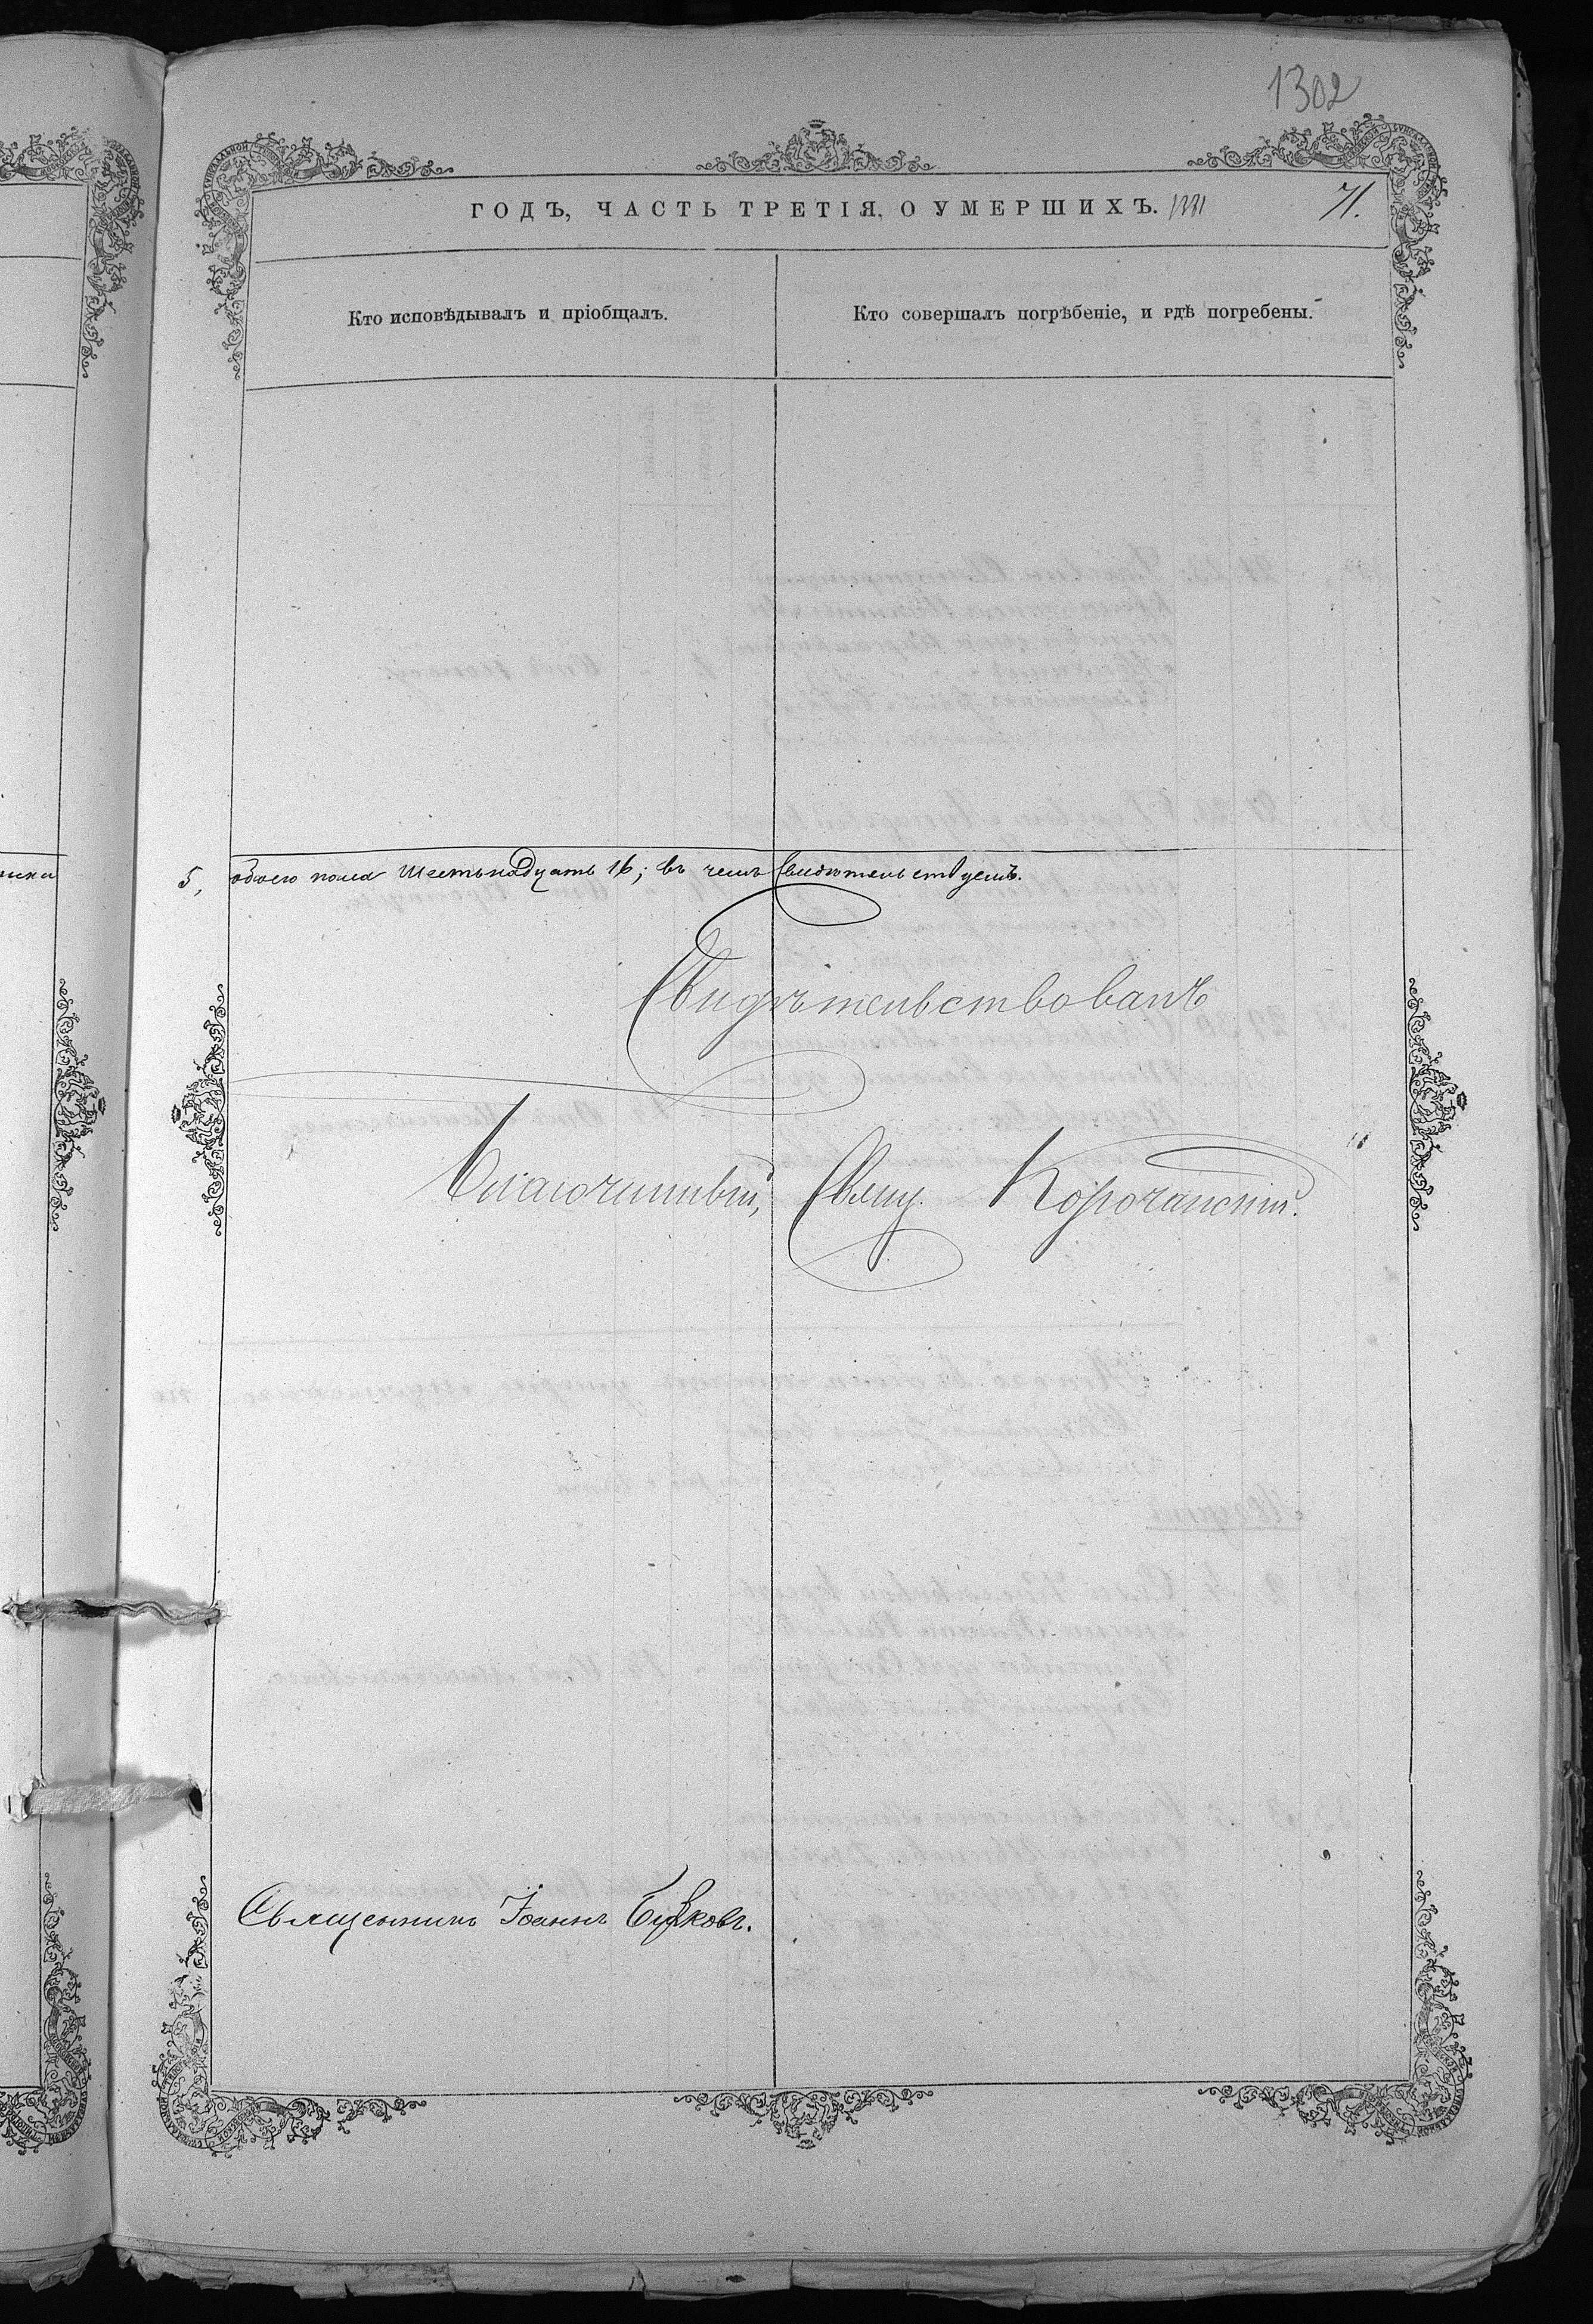 1302
ГОДЪ, ЧАСТЬ ТРЕТІЯ, О УМЕРШИХЪ. 1881
71.
Кто исповѣдывалъ и пріобщалъ.
Кто совершалъ погрѣбеніе, и гдѣ погребены.
5, обоего пола шестьнадцать 16; въ чемъ свидѣтельствуемъ.
Свидѣтельствовалъ
Благочинный, Свящ. Корочанскій.
Священникъ Іоаннъ